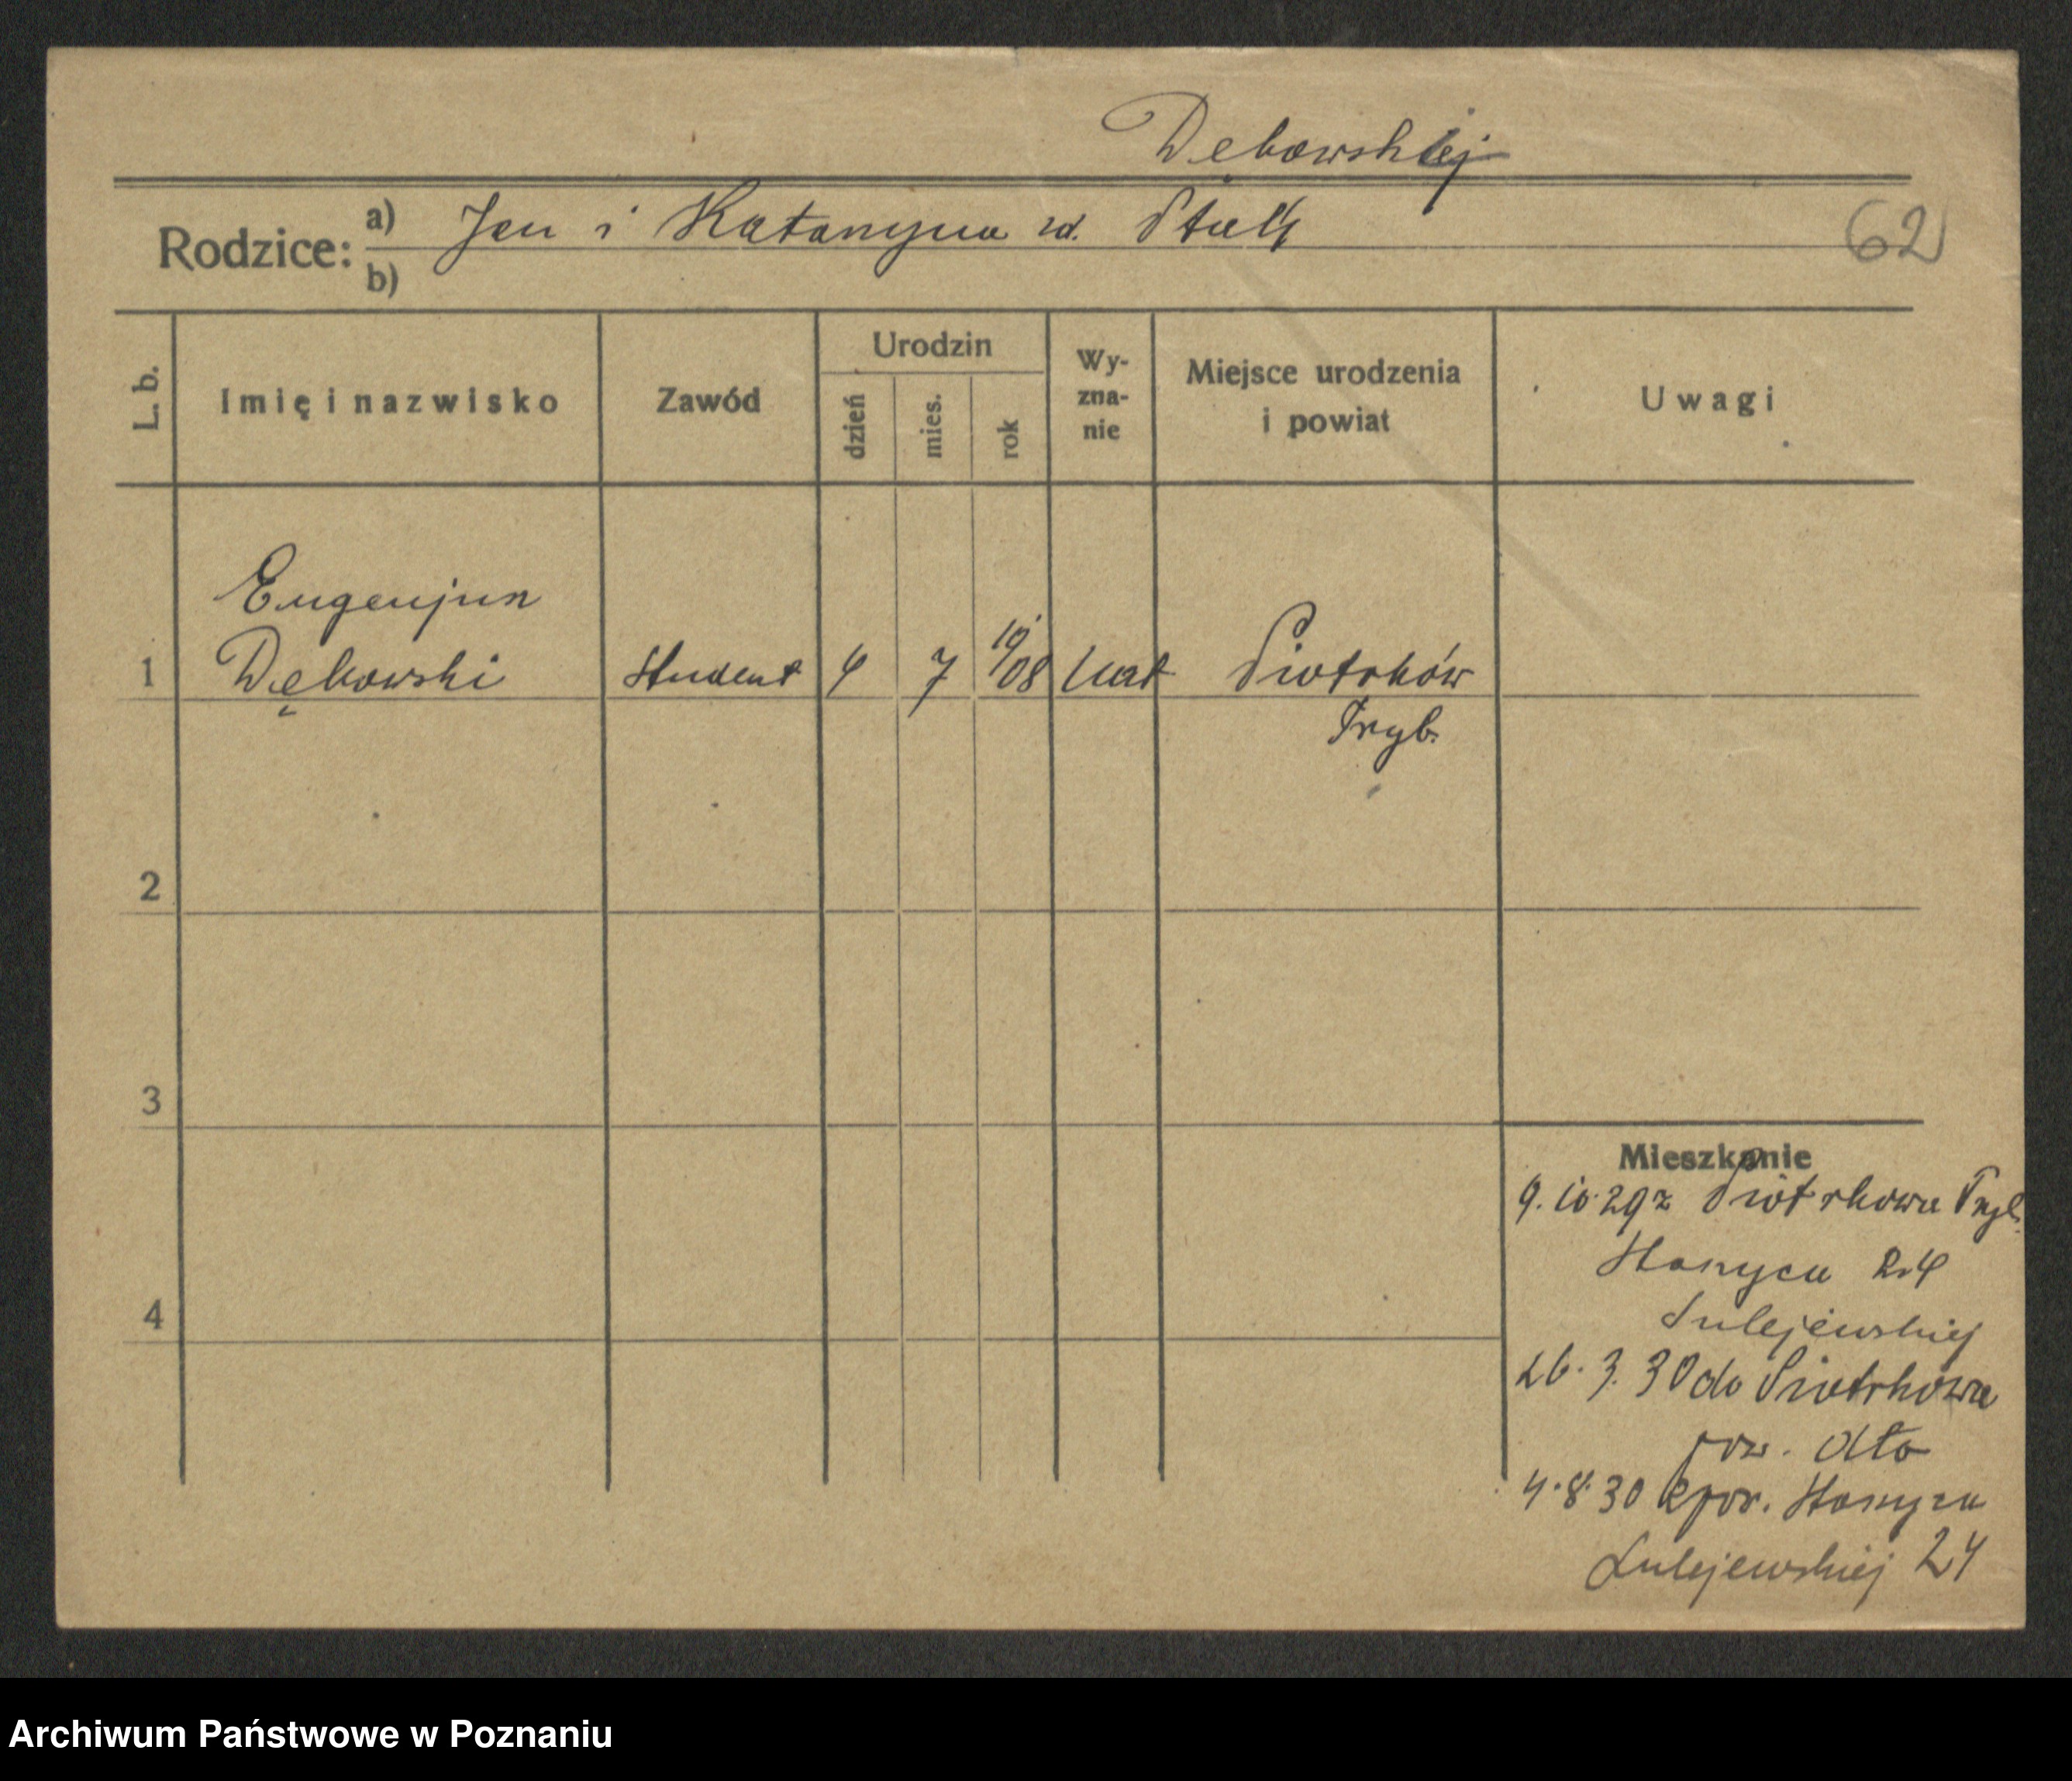 Dębowskiej
Rodzice: a) Jan i Katarzyna zd.
b)
62
L. b. Imię i nazwisko Zawód Urodzin dzień mies. rok Wy-zna-nie Miejsce urodzenia i powiat Uwagi
Eugenjusz
1 Dębowski student 4 7 19/08 kat Piotrków
Tryb.
2
3
4
Mieszkanie
9.10.29 z Piotrkowa Tryb.
Starzyca 24
Sulejewskiej
26.3.30 do Piotrkowa
pow. dto
4.8.30 zpow. Starzyca
Sulejewskiej 24
Archiwum Państwowe w Poznaniu